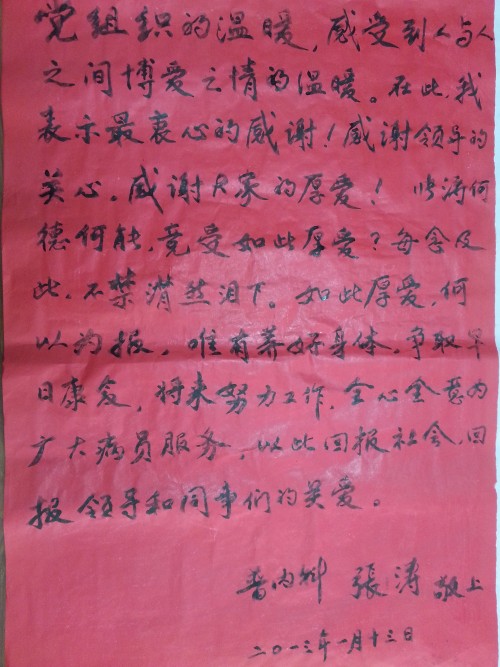 党组织的温暖，感受到人与人
之间博爱之情的温暖。在此，我
表示最衷心的感谢！感谢领导的
关心，感谢大家的厚爱！ 张涛何
德何能，竟受如此厚爱？每念及
此，不禁潸然泪下。如此厚爱，何
以为报，唯有养好身体，争取早
日康复，将来努力工作，全心全意为
广大病员服务，以此回报社会，回
报领导和同事们的关爱。
普内科 張涛 敬上
二〇一三年一月十三日